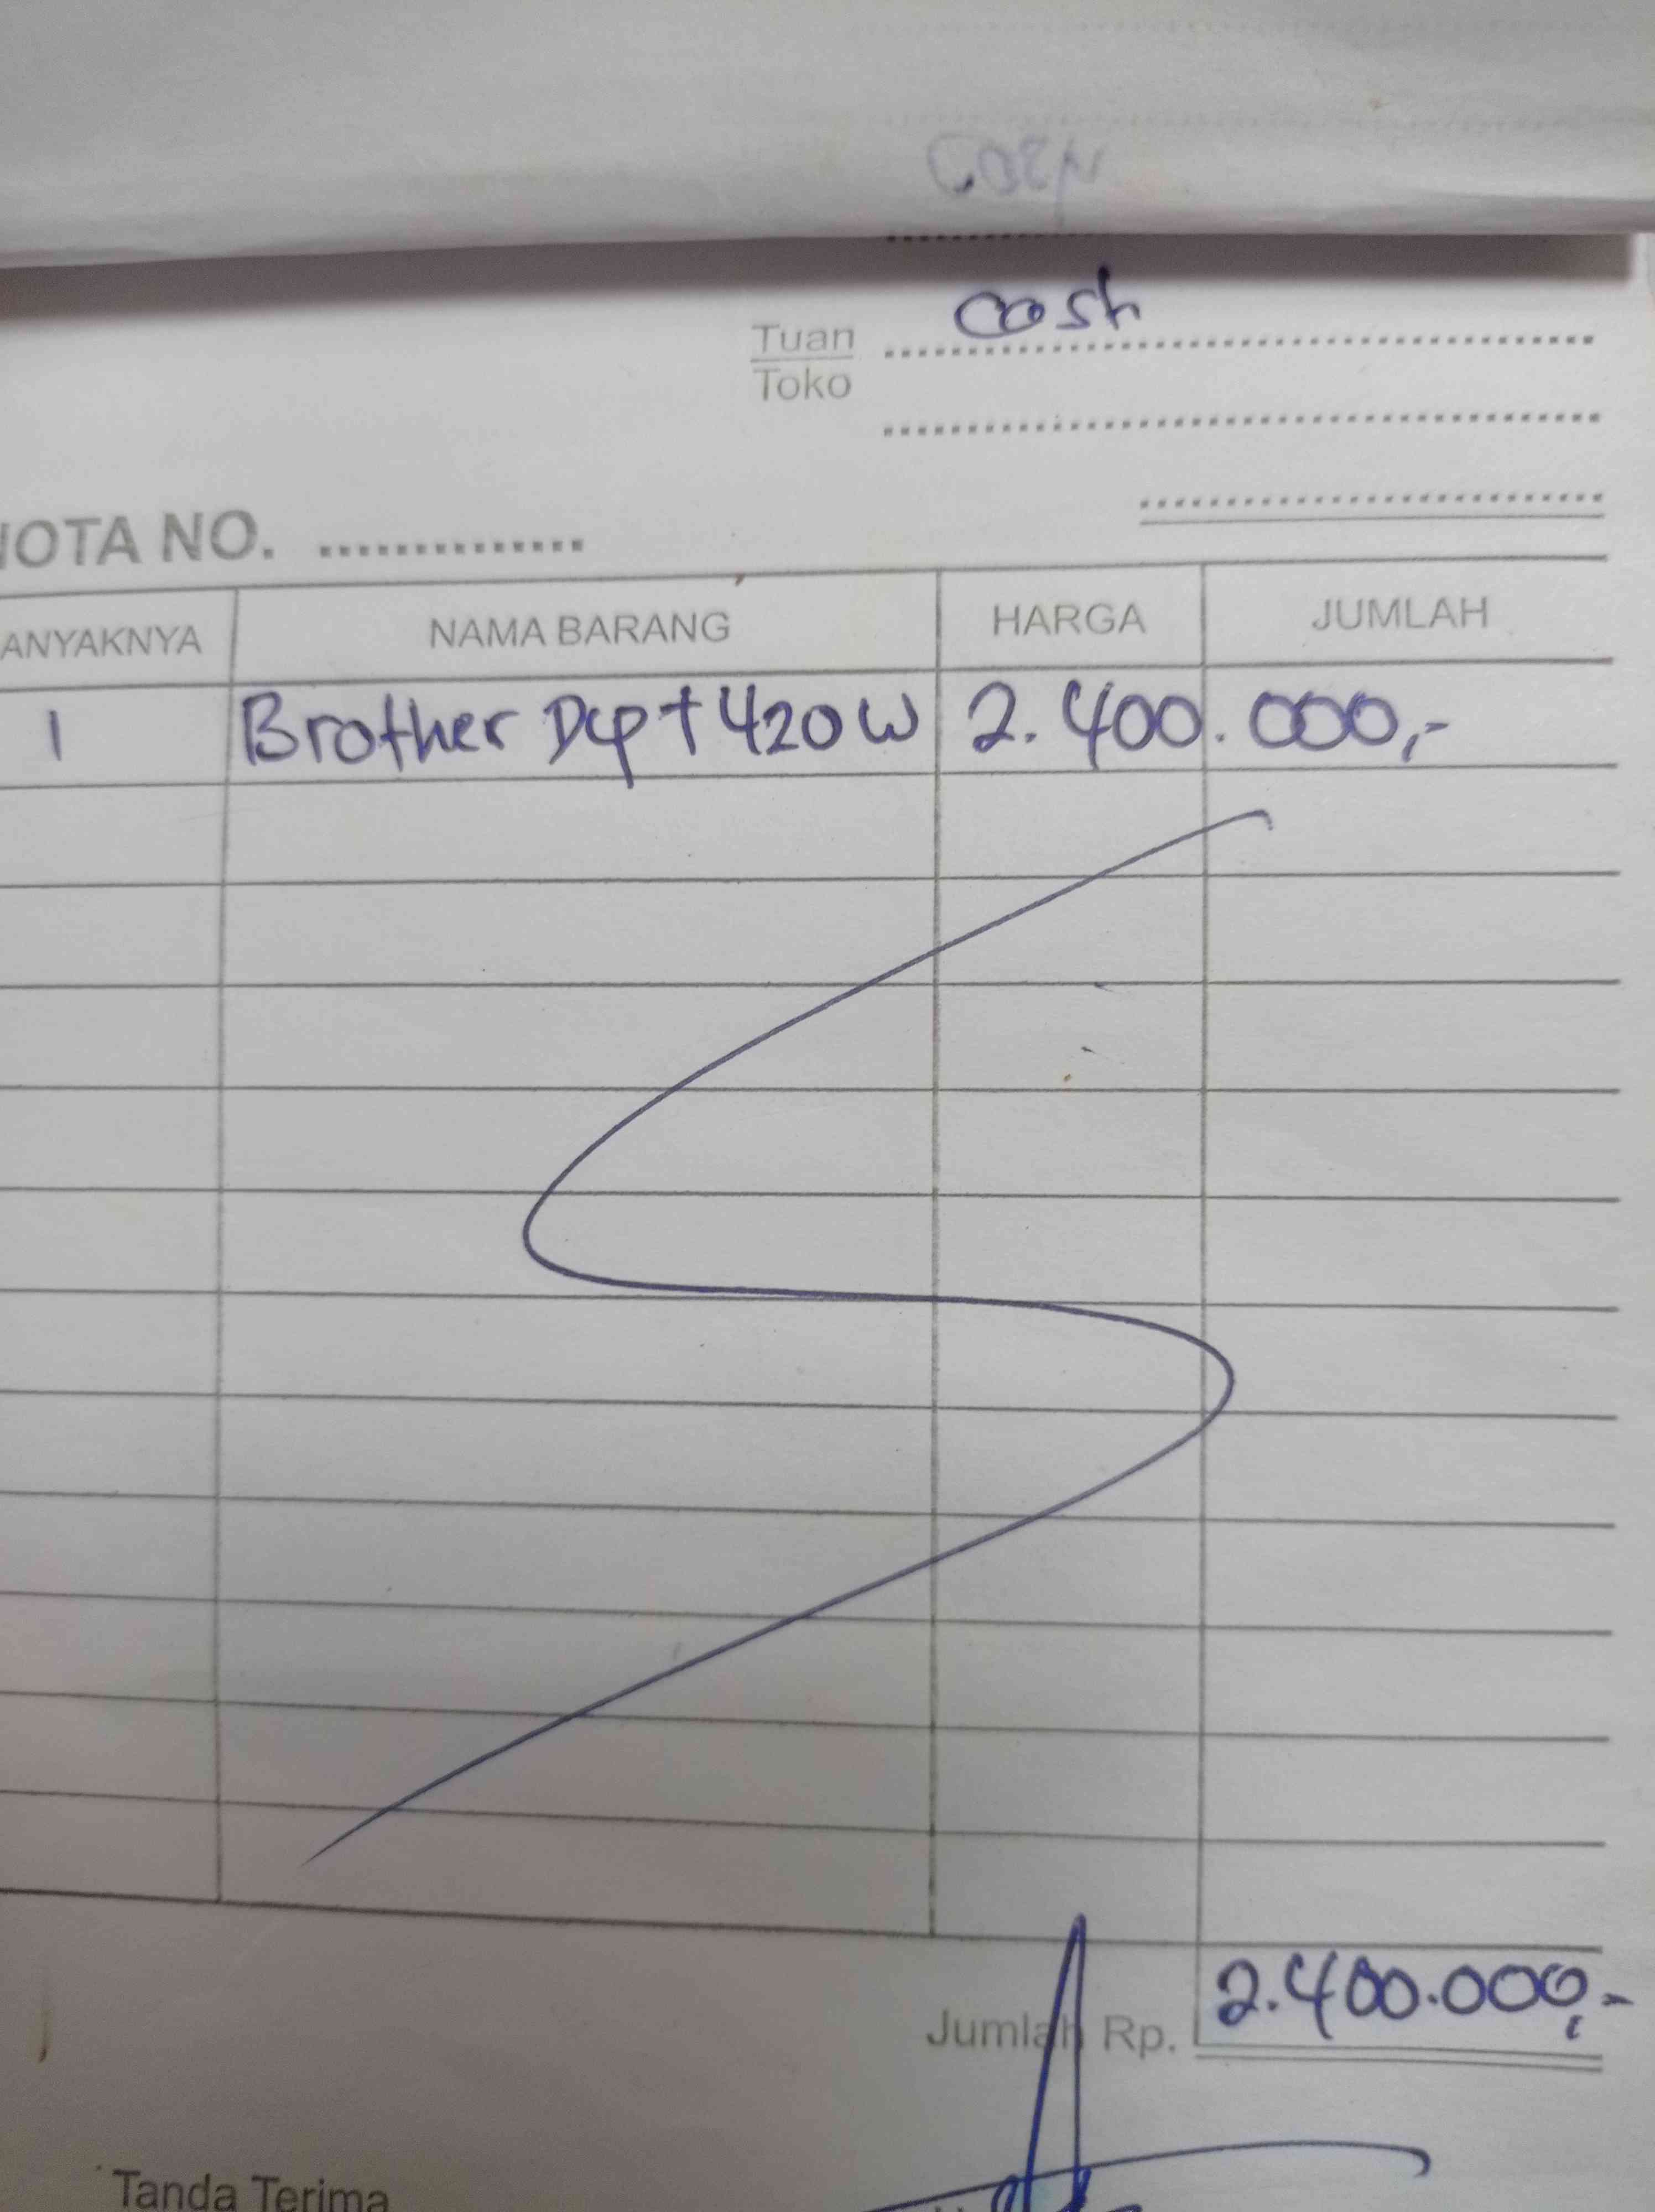 cash
Tuan
Toko
NOTA NO. ..............
ANYAKNYA NAMA BARANG HARGA JUMLAH
1 Brother Dcp t 420 W 2.400.000,-
Jumlah Rp. 2.400.000,-
Tanda Terima